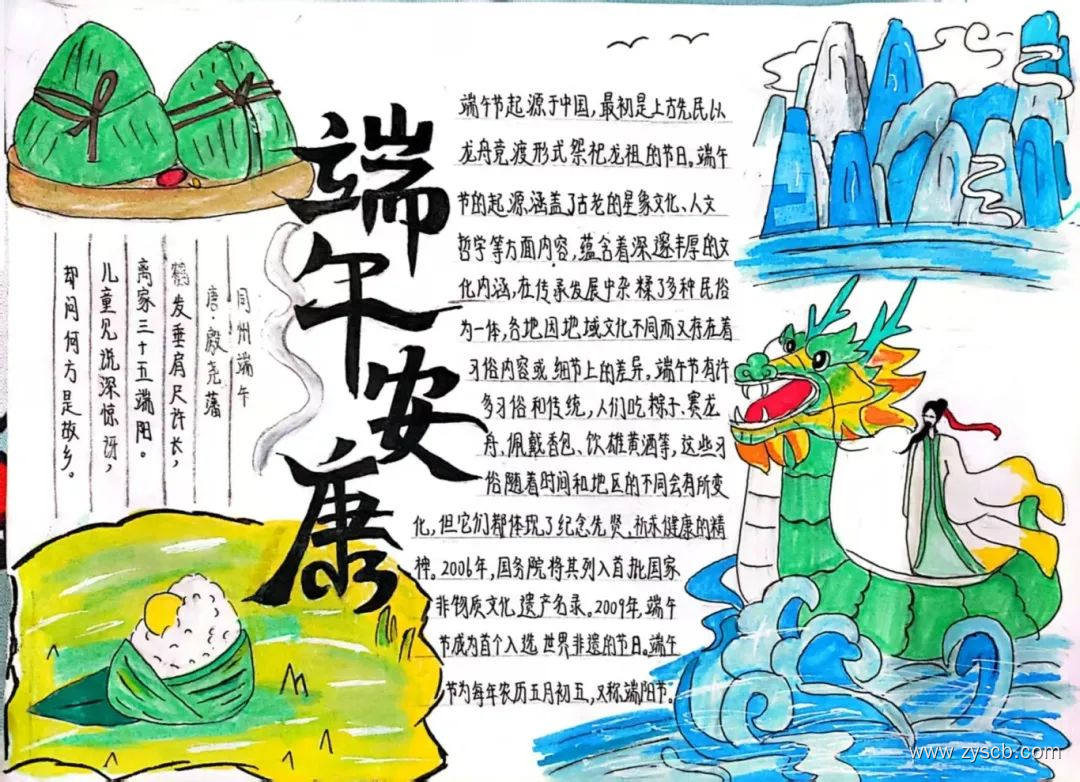 端午安康
同州端午
唐·殷尧藩
鹤发垂肩尺许长，
离家三十五端阳。
儿童见说深惊讶，
却问何方是故乡。
端午节起源于中国，最初是上古先民以
龙舟竞渡形式祭祀龙祖的节日。端午
节的起源，涵盖了古老的星象文化、人文
哲学等方面内容，蕴含着深邃丰厚的文
化内涵，在传承发展中杂糅了多种民俗
为一体，各地因地域文化不同而又存在着
习俗内容或细节上的差异。端午节有许
多习俗和传统，人们吃粽子、赛龙
舟、佩戴香包、饮雄黄酒等，这些习
俗随着时间和地区的不同会有所变
化，但它们都体现了纪念先贤、祈求健康的精
神。2006年，国务院将其列入首批国家
非物质文化遗产名录。2009年，端午
节成为首个入选世界非遗的节日。端午
节为每年农历五月初五，又称端阳节。
www.zyscb.com